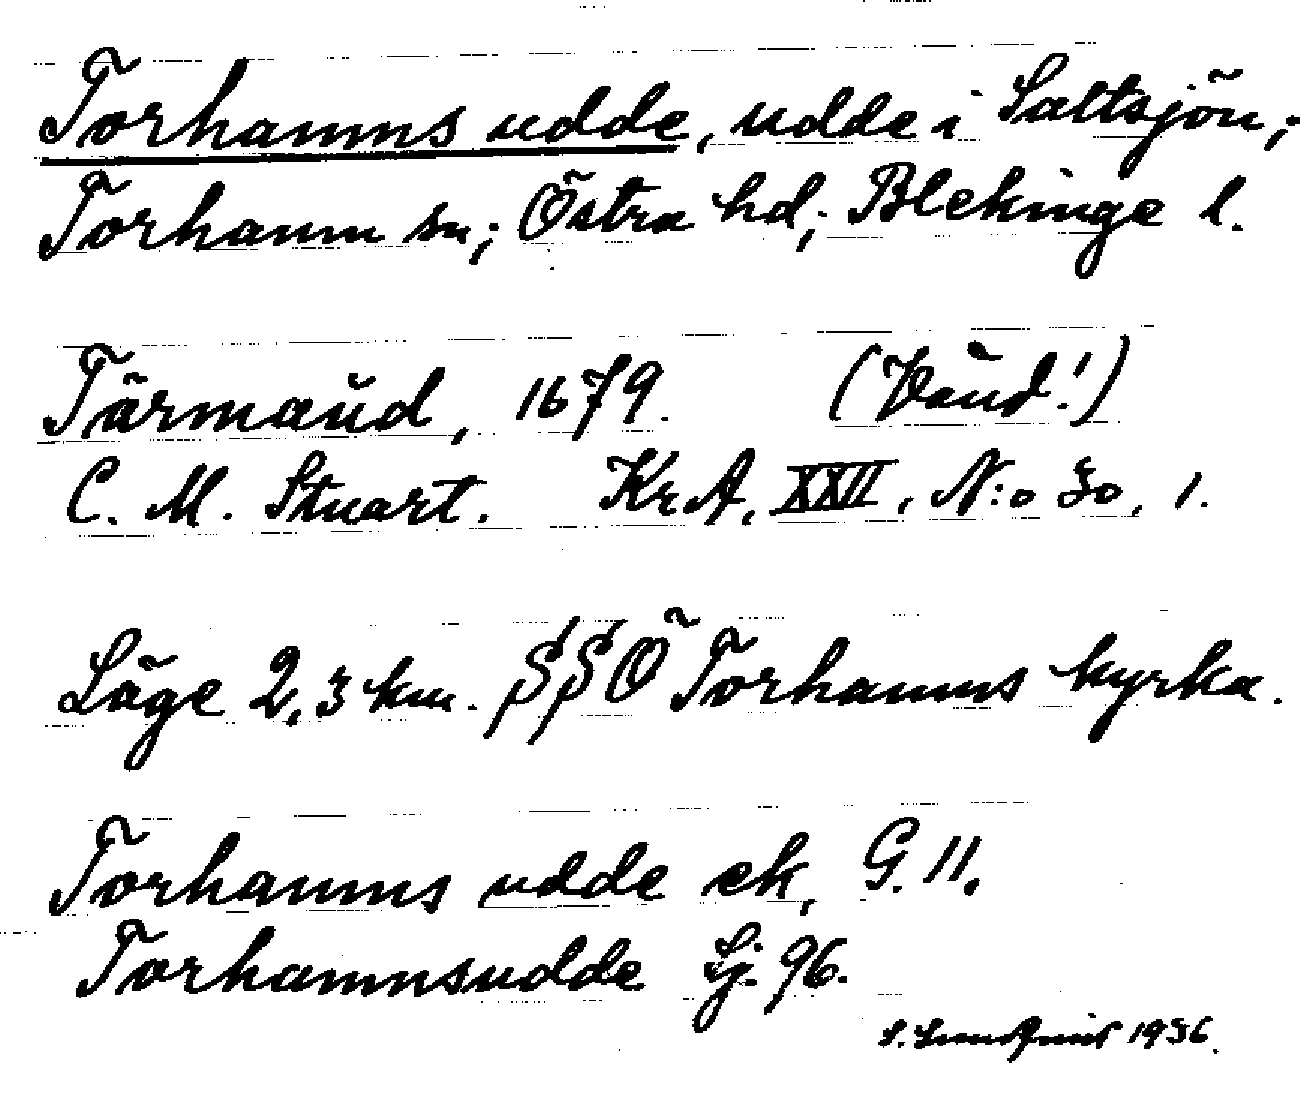 Torhamns udde, udde i Saltsjön;
Torhamn sn; Östra hd; Blekinge l.
Tärmaŭd, 1679. (Vaŭd!)
C. M. Stuart. KrA, XXII, N:o 30, 1.
Läge 2,3 km. SSÖ Torhamns kyrka.
Torhamns udde ek, G. 11.
Torhamnsudde Sj. 96.
1936.